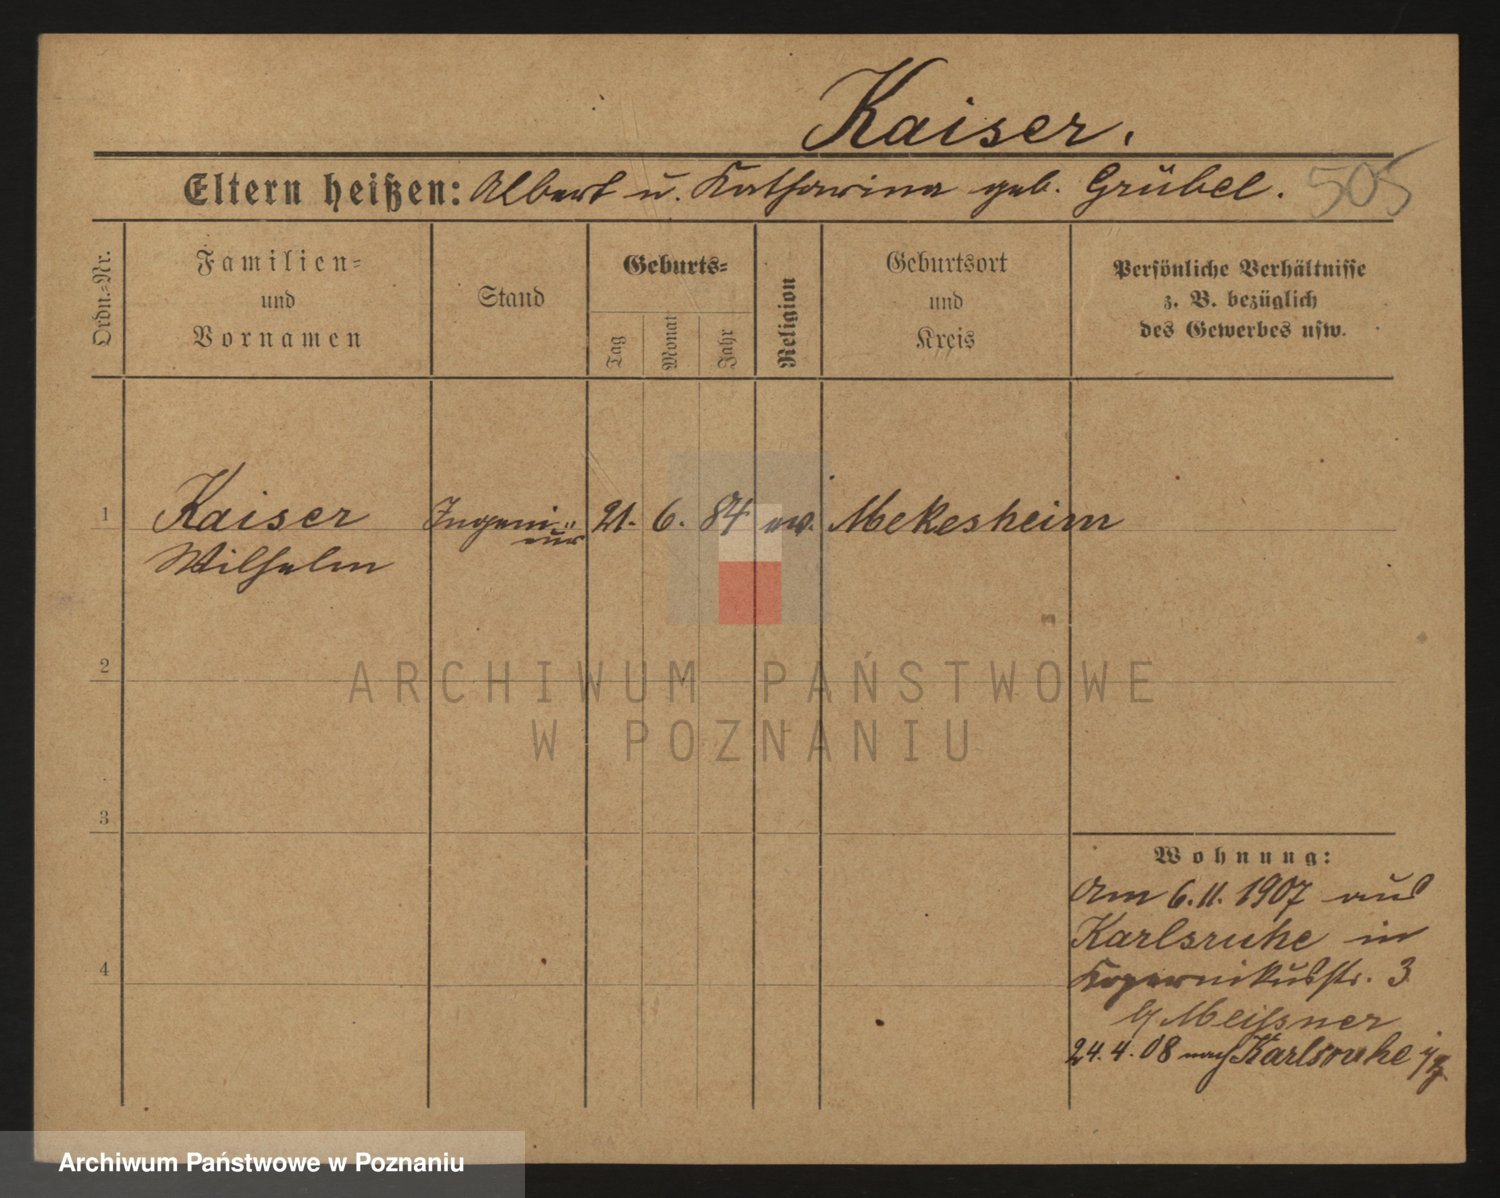 Kaiser.
Eltern heißen: Albert u. Katharina geb. Grübel. 505
Ordn.=Nr.
Familien=
und
Vornamen
Stand
Geburts=
Tag
Monat
Jahr
Religion
Geburtsort
und
Kreis
Persönliche Verhältnisse
z. B. bezüglich
des Gewerbes usw.
1 Kaiser Ingeni- 21. 6. 84 ev. Mekesheim
eur
Wilhelm
2
3
4
Wohnung:
Am 6.11.1907 aus
Karlsruhe in
Kopernikusstr. 3
Meißner
24.4.08 nach Karlsruhe
ARCHIWUM PAŃSTWOWE
W POZNANIU
Archiwum Państwowe w Poznaniu